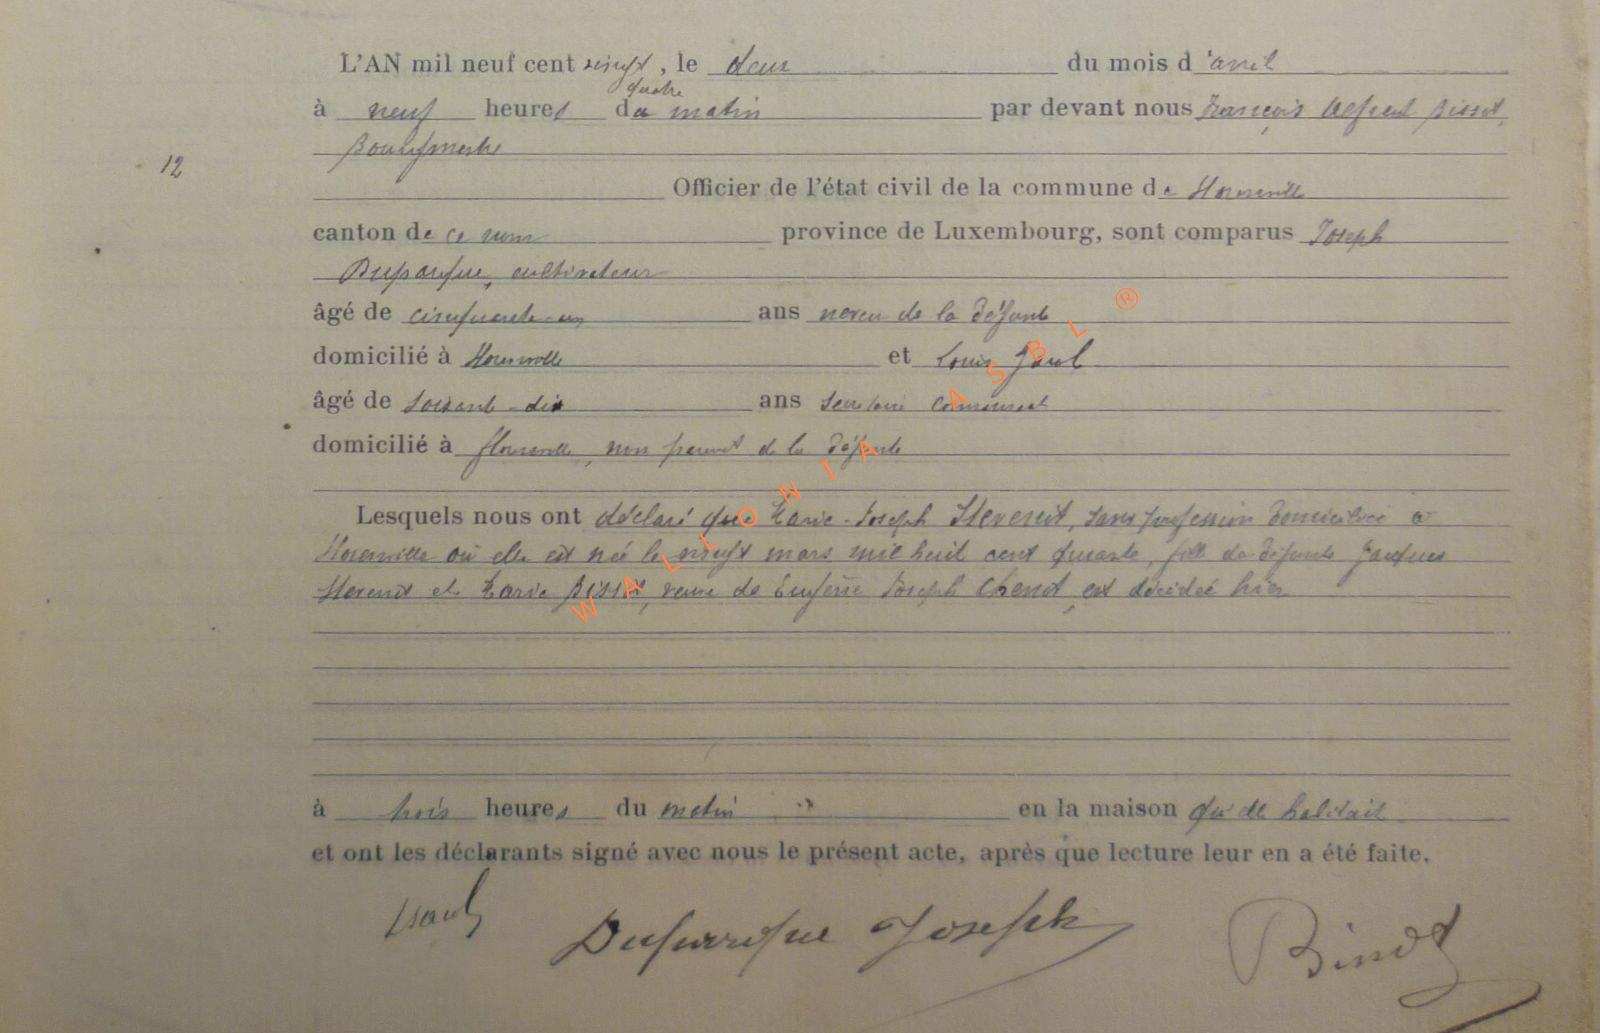 L'AN mil neuf cent vingt quatre, le deux du mois d'avril
à neuf heures du matin par devant nous François Alfred Bissot,
Bourgmestre
12
Officier de l'état civil de la commune de Florenville
canton de ce nom province de Luxembourg, sont comparus Joseph
cultivateur
âgé de cinquante-un ans neveu de la défunte
domicilié à Florenville et Louis
âgé de soixante-dix ans secrétaire communal
domicilié à Florenville, non parent de la défunte
Lesquels nous ont déclaré que Marie-Joseph Stevenot, sans profession domiciliée à
Florenville où elle est née le vingt mars mil huit cent quarante, fille de défunts Jacques
Stevenot et Marie Bissot, veuve de Eugène Joseph Chenot, est décédée hier
à trois heures du matin en la maison qu'elle habitait
et ont les déclarants signé avec nous le présent acte, après que lecture leur en a été faite.
Joseph
WALLONIA ASBL ®